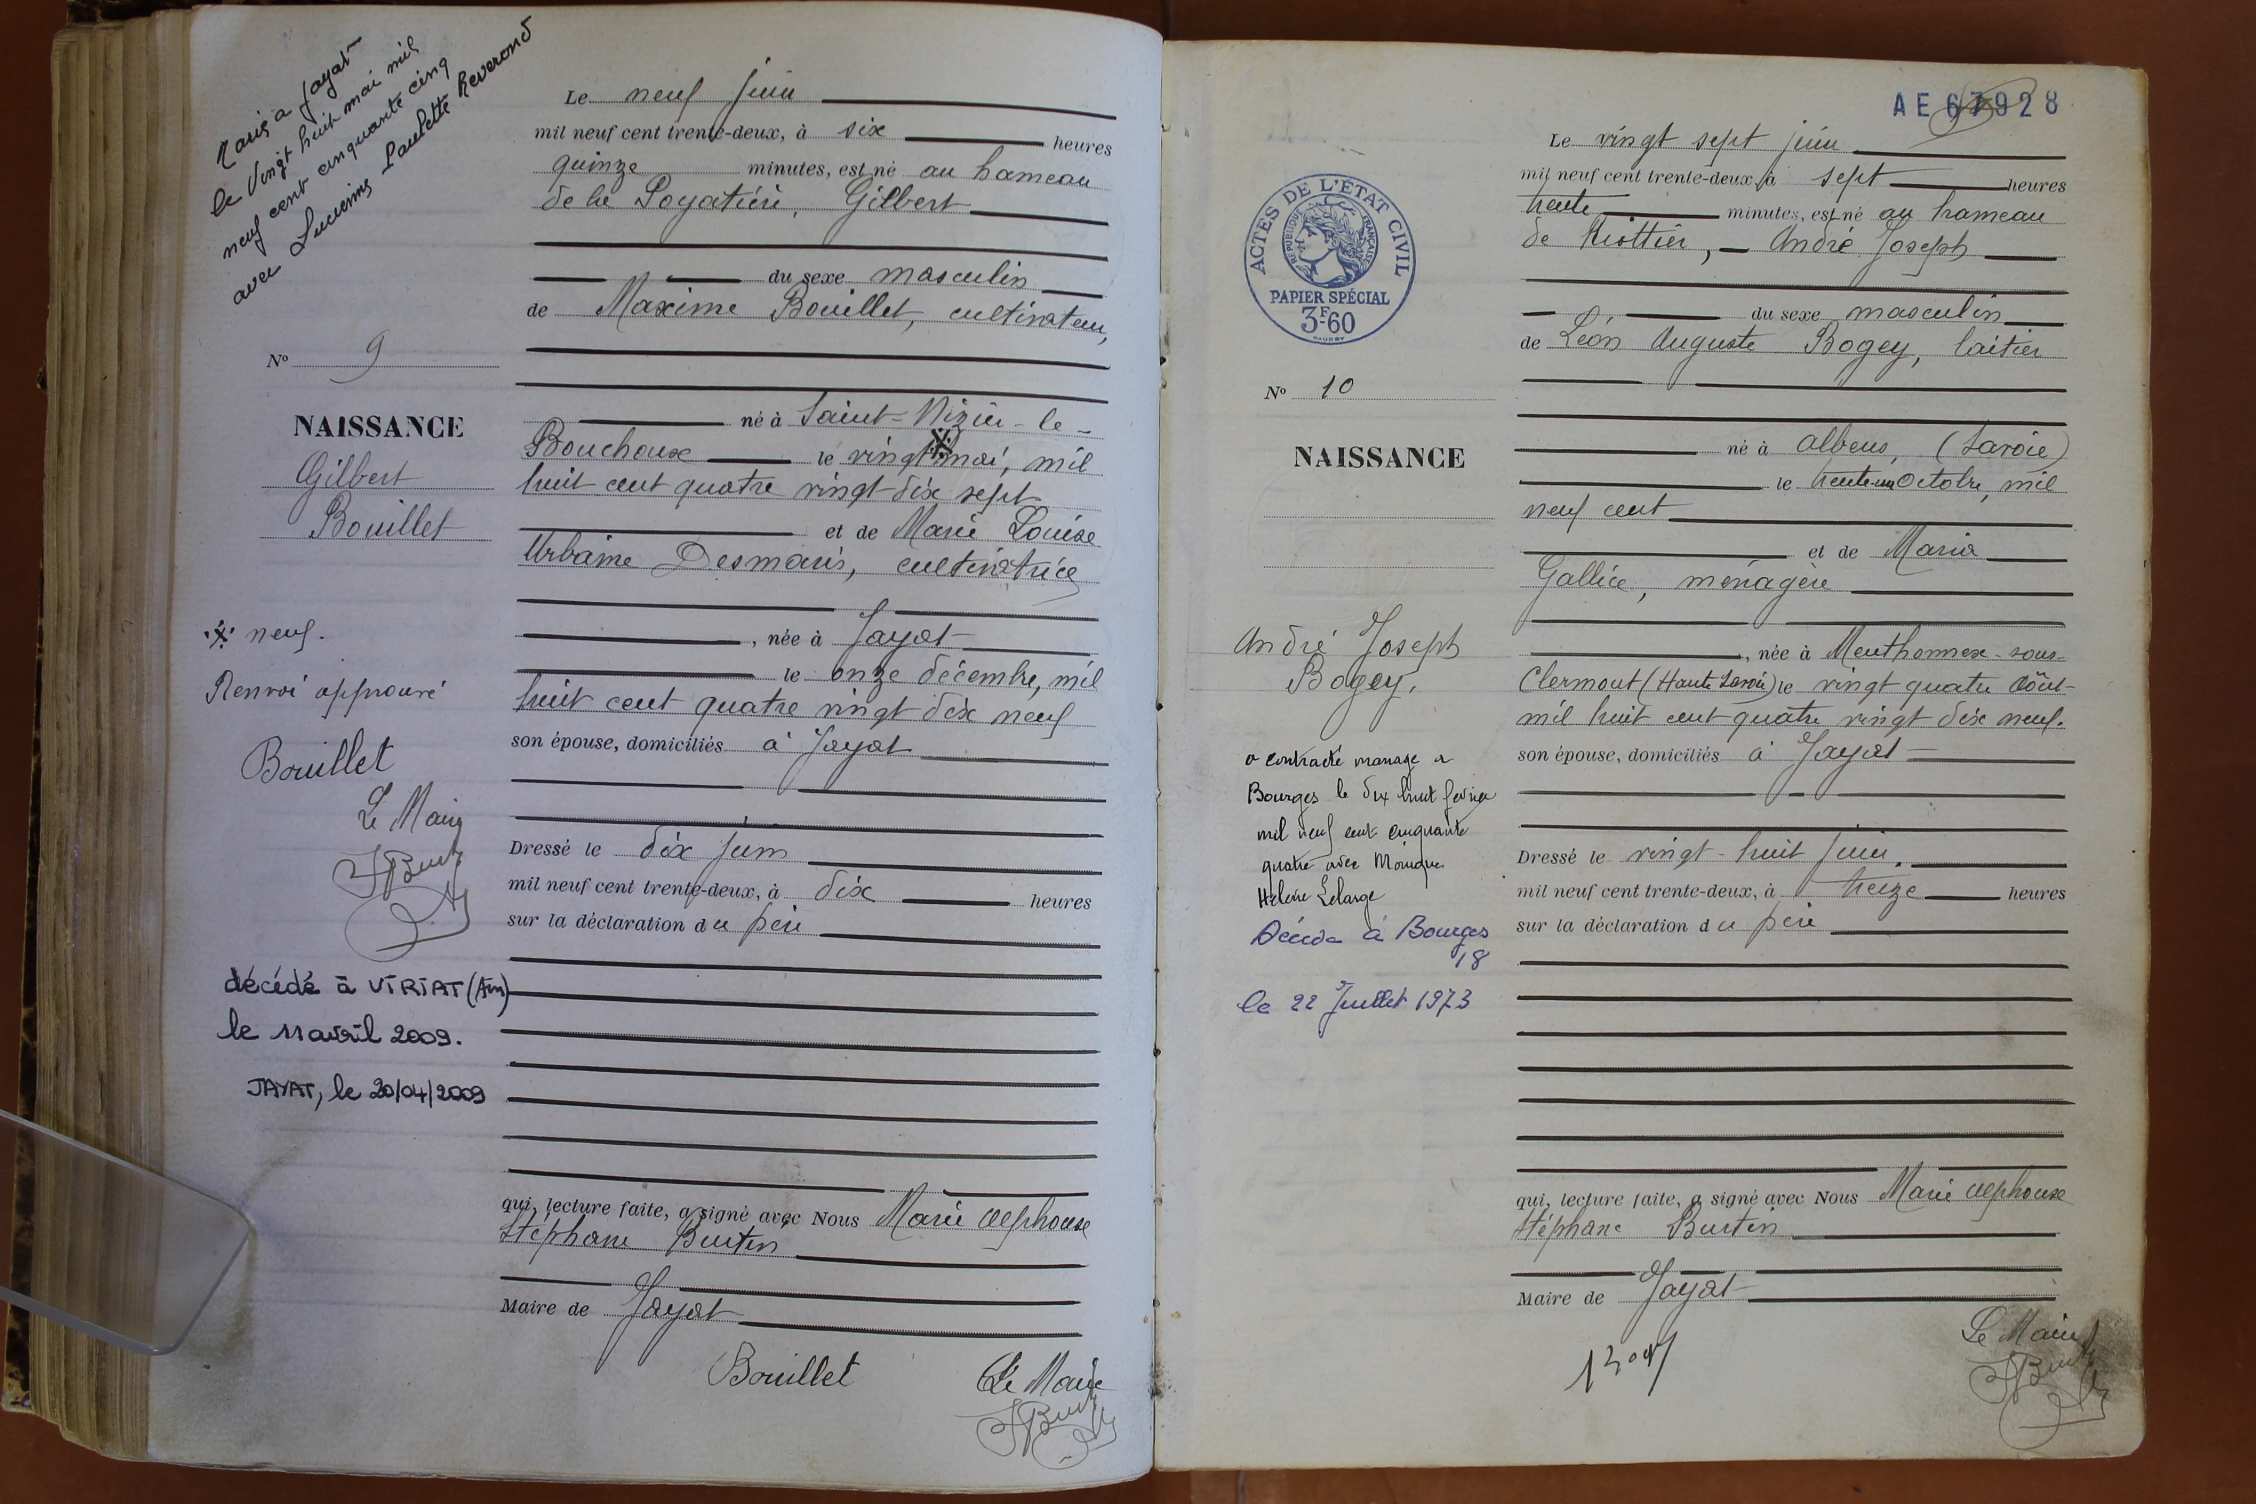 Marié à Jayat
le Vingt huit mai mil
neuf cent cinquante cinq
avec Lucienne Paulette Reverond
Le neuf juin
mil neuf cent trente-deux, à six heures
quinze minutes, est né au hameau
de la Poyatière, Gilbert
du sexe masculin
de Maxime Bouillet, cultivateur,
né à Saint-Nizier-le-
Bouchoux le vingt ※ mai, mil
huit cent quatre vingt dix sept
et de Marie Louise
Urbaine Desmaris, cultivatrice
, née à Jayat
le onze décembre, mil
huit cent quatre vingt dix neuf
son épouse, domiciliés à Jayat
Dressé le dix juin
mil neuf cent trente-deux, à dix heures
sur la déclaration du père
qui, lecture faite, a signé avec Nous Marie Alphonse
Stéphane Burtin
Maire de Jayat
Bouillet
Le Maire
N° 9
NAISSANCE
Gilbert
Bouillet
※ neuf.
Renvoi approuvé
Bouillet
Le Maire
décédé à VIRIAT (Ain)
le 11 avril 2009.
JAYAT, le 20/04/2009
AE 67928
ACTES DE L'ÉTAT CIVIL
RÉPUBLIQUE FRANÇAISE
PAPIER SPÉCIAL
3F60
Le vingt sept juin
mil neuf cent trente-deux, à sept heures
trente minutes, est né au hameau
de Riottier, André Joseph
du sexe masculin
de Léon Auguste Bogey, laitier
né à Albens, (Savoie)
le trente-un Octobre, mil
neuf cent
et de Maria
Gallice, ménagère
, née à Menthonnex-sous-
Clermont (Haute Savoie) le vingt quatre août
mil huit cent quatre vingt dix neuf.
son épouse, domiciliés à Jayat
Dressé le vingt-huit juin.
mil neuf cent trente-deux, à treize heures
sur la déclaration du père
qui, lecture faite, a signé avec Nous Marie Alphonse
Stéphane Burtin
Maire de Jayat
Le Maire
N° 10
NAISSANCE
André Joseph
Bogey.
a contracté mariage à
Bourges le dix huit février
mil neuf cent cinquante
quatre avec Monique
Hélène Lelarge
Décédé à Bourges
18
le 22 Juillet 1973